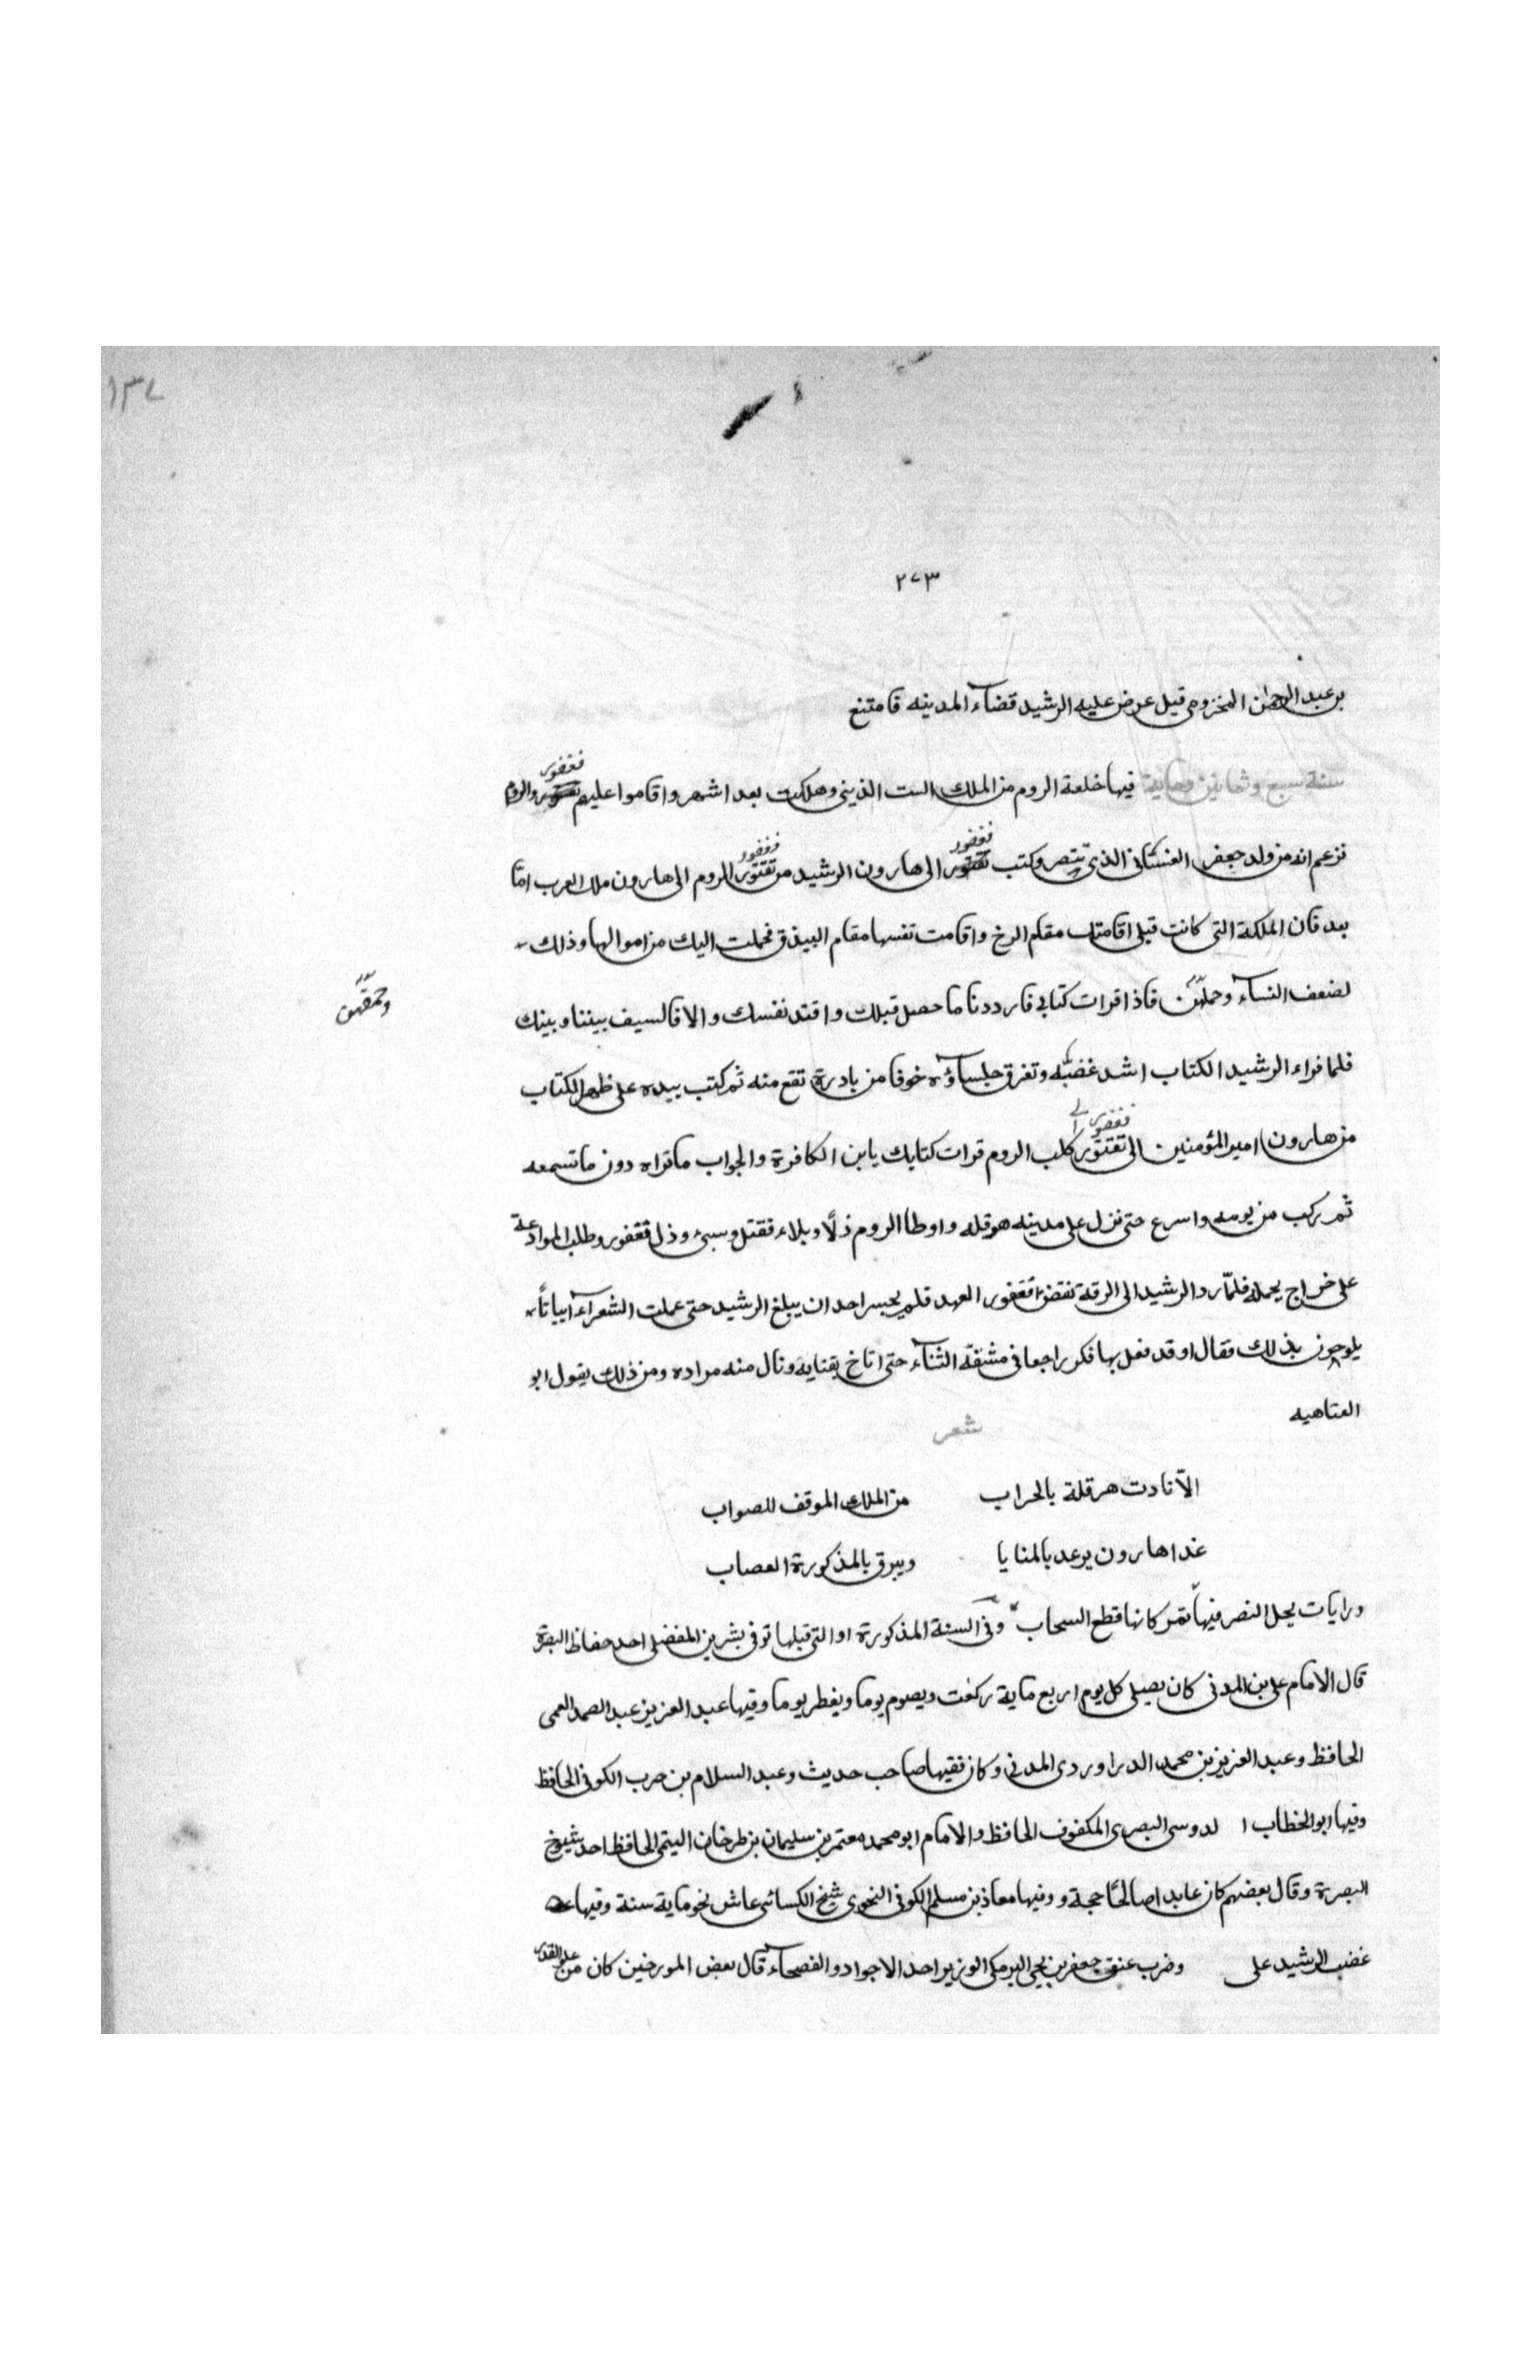 ١٣٧
٢٧٣
بن عبد الرحمن المخزومى قيل عرض عليه الرشيد قضاء المدينه فامتنع
سنة سبع وثمانين ومائة فيها خلعة الروم من الملك الست الذينى وهلكت بعد اشهر واقاموا عليهم نقفور والروم
نقفور
تزعم انه من ولد جعفر الغسانى الذى تنصر وكتب نقفور الى هارون الرشيد من نقفور الروم الى هارون ملك العرب امّا
بعد فان الملكة التى كانت قبلى اقامتك مقام الرخ واقامت نفسها مقام البيذق فحملت اليك من اموالها وذلك
لضعف النساء وحملهن فاذا قرات كتابى فارددنا ما حصل قبلك وافتد نفسك والا فالسيف بيننا وبينك
وحمقهن
فلما قراء الرشيد الكتاب اشد غضبه وتفرق جلساؤه خوفا من بادرة تقع منه ثم كتب بيده على ظهر الكتاب
من هارون امير المؤمنين الى نقفور كلب الروم قرات كتابك يابن الكافرة والجواب ماتراه دون ما تسمعه
ثم ركب من يومه واسرع حتى نزل على مدينه هرقله واوطا الروم ذلًا وبلاء فقتل وسبى وذل نقفور وطلب الموادعة
على خراج يحمله فلمّا رد الرشيد الى الرقة نقض نقفور العهد فلم يجسر احد ان يبلغ الرشيد حتى عملت الشعراء ابياتاً
يلوحون بذلك فقال اوقد فعل بها فكر راجعا فى مشقة الثناء حتى اناخ بفنايه ونال منه مراده ومن ذلك يقول ابو
العتاهيه
شعر
الّا نادت هرقلة بالخراب من الملك الموفق للصواب
غدا هارون يرعد بالمنايا ويبرق بالمذكورة العصاب
ورايات يحل النصر فيها تمر كانها قطع السحاب وفى السنة المذكورة او التى قبلها توفى بشر بن المفضل احد حفاظ البصرة
قال الامام على بن المدنى كان يصلى كل يوم اربع ماية ركعت ويصوم يوما ويفطر يوما وفيها عبد العزيز عبد الصمد العمى
الحافظ وعبد العزيز بن محمد الدراوردى المدنى وكان فقيها صاحب حديث وعبد السلام بن حرب الكوفى الحافظ
وفيها ابو الخطاب الدوسى البصرى المكفوف الحافظ والامام ابو محمد معتمر بن سليمان بن طرخان التيمى الحافظ احد شيوخ
البصرة وقال بعضهم كان عابدا صالحًا حجة و وفيها معاذ بن مسلم الكوفى النحوى شيخ الكسائى عاش نحو ماية سنة وفيها
غضب الرشيد على وضرب عنق جعفر بن يحيى البرمكى الوزير احد الاجواد والفصحاء قال بعض المورخين كان من علو القدر